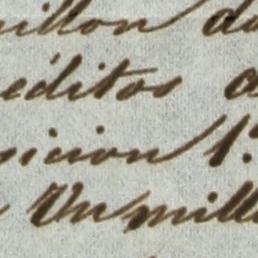 millon de
éditos a
sicion 1.
Un mill